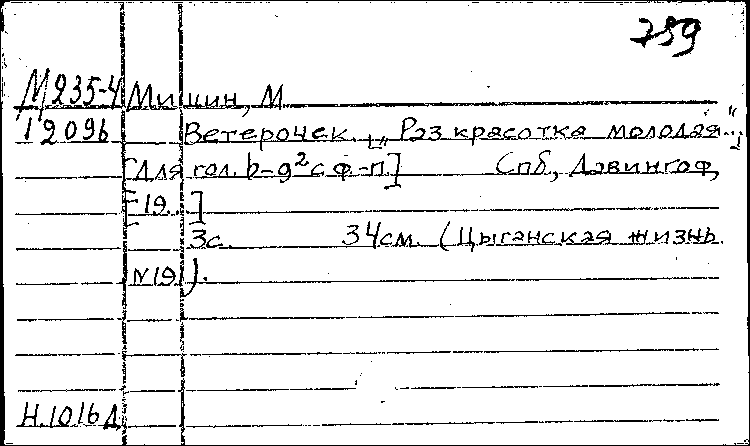 759
М235-4 Мишин, М
12096 Ветерочек. „Раз красотка молодая..."
[Для гол. b-g² с ф-п.] Спб, Давингоф,
[19..]
3с. 34см. (Цыганская жизнь.
№19).
Н.1016Д